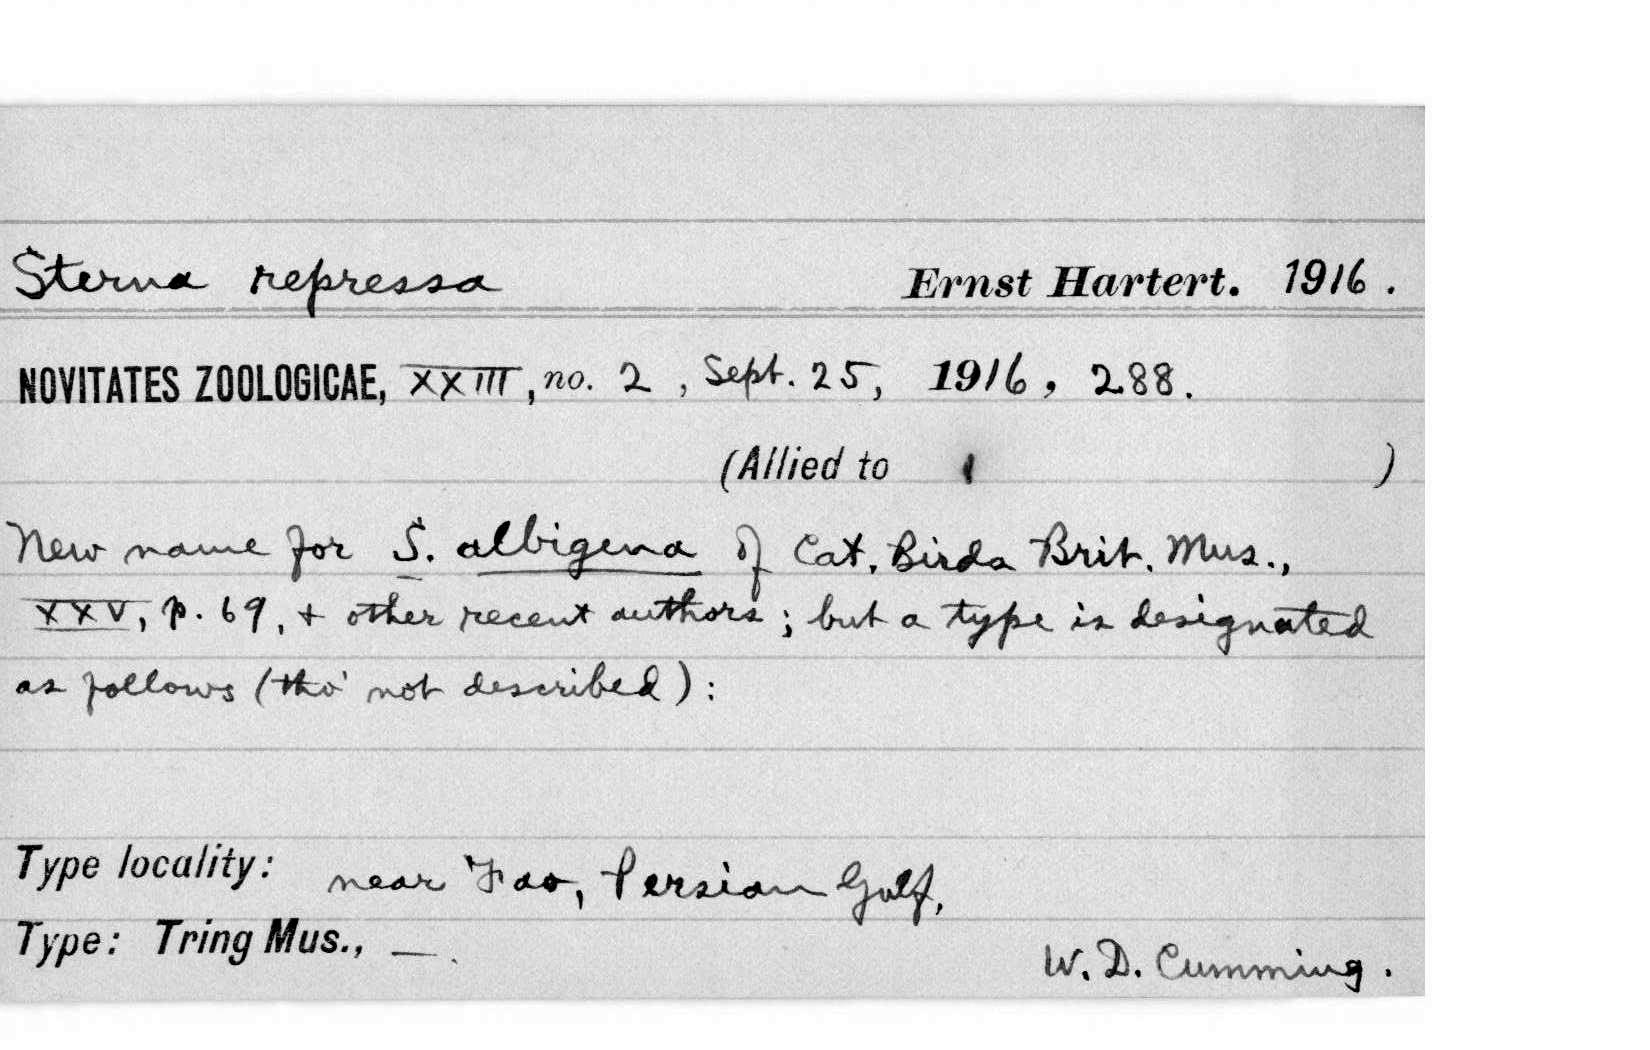 Sterna repressa Ernst Hartert. 1916.
NOVITATES ZOOLOGICAE, XXIII, no. 2, Sept. 25, 1916, 288.
(Allied to )
New name for S. albigena of Cat. Birds Brit. Mus.,
XXV, p. 69, + other recent authors; but a type is designated
as follows (tho' not described):
Type locality: near Fao, Persian Gulf,
Type: Tring Mus., — .
W. D. Cumming.